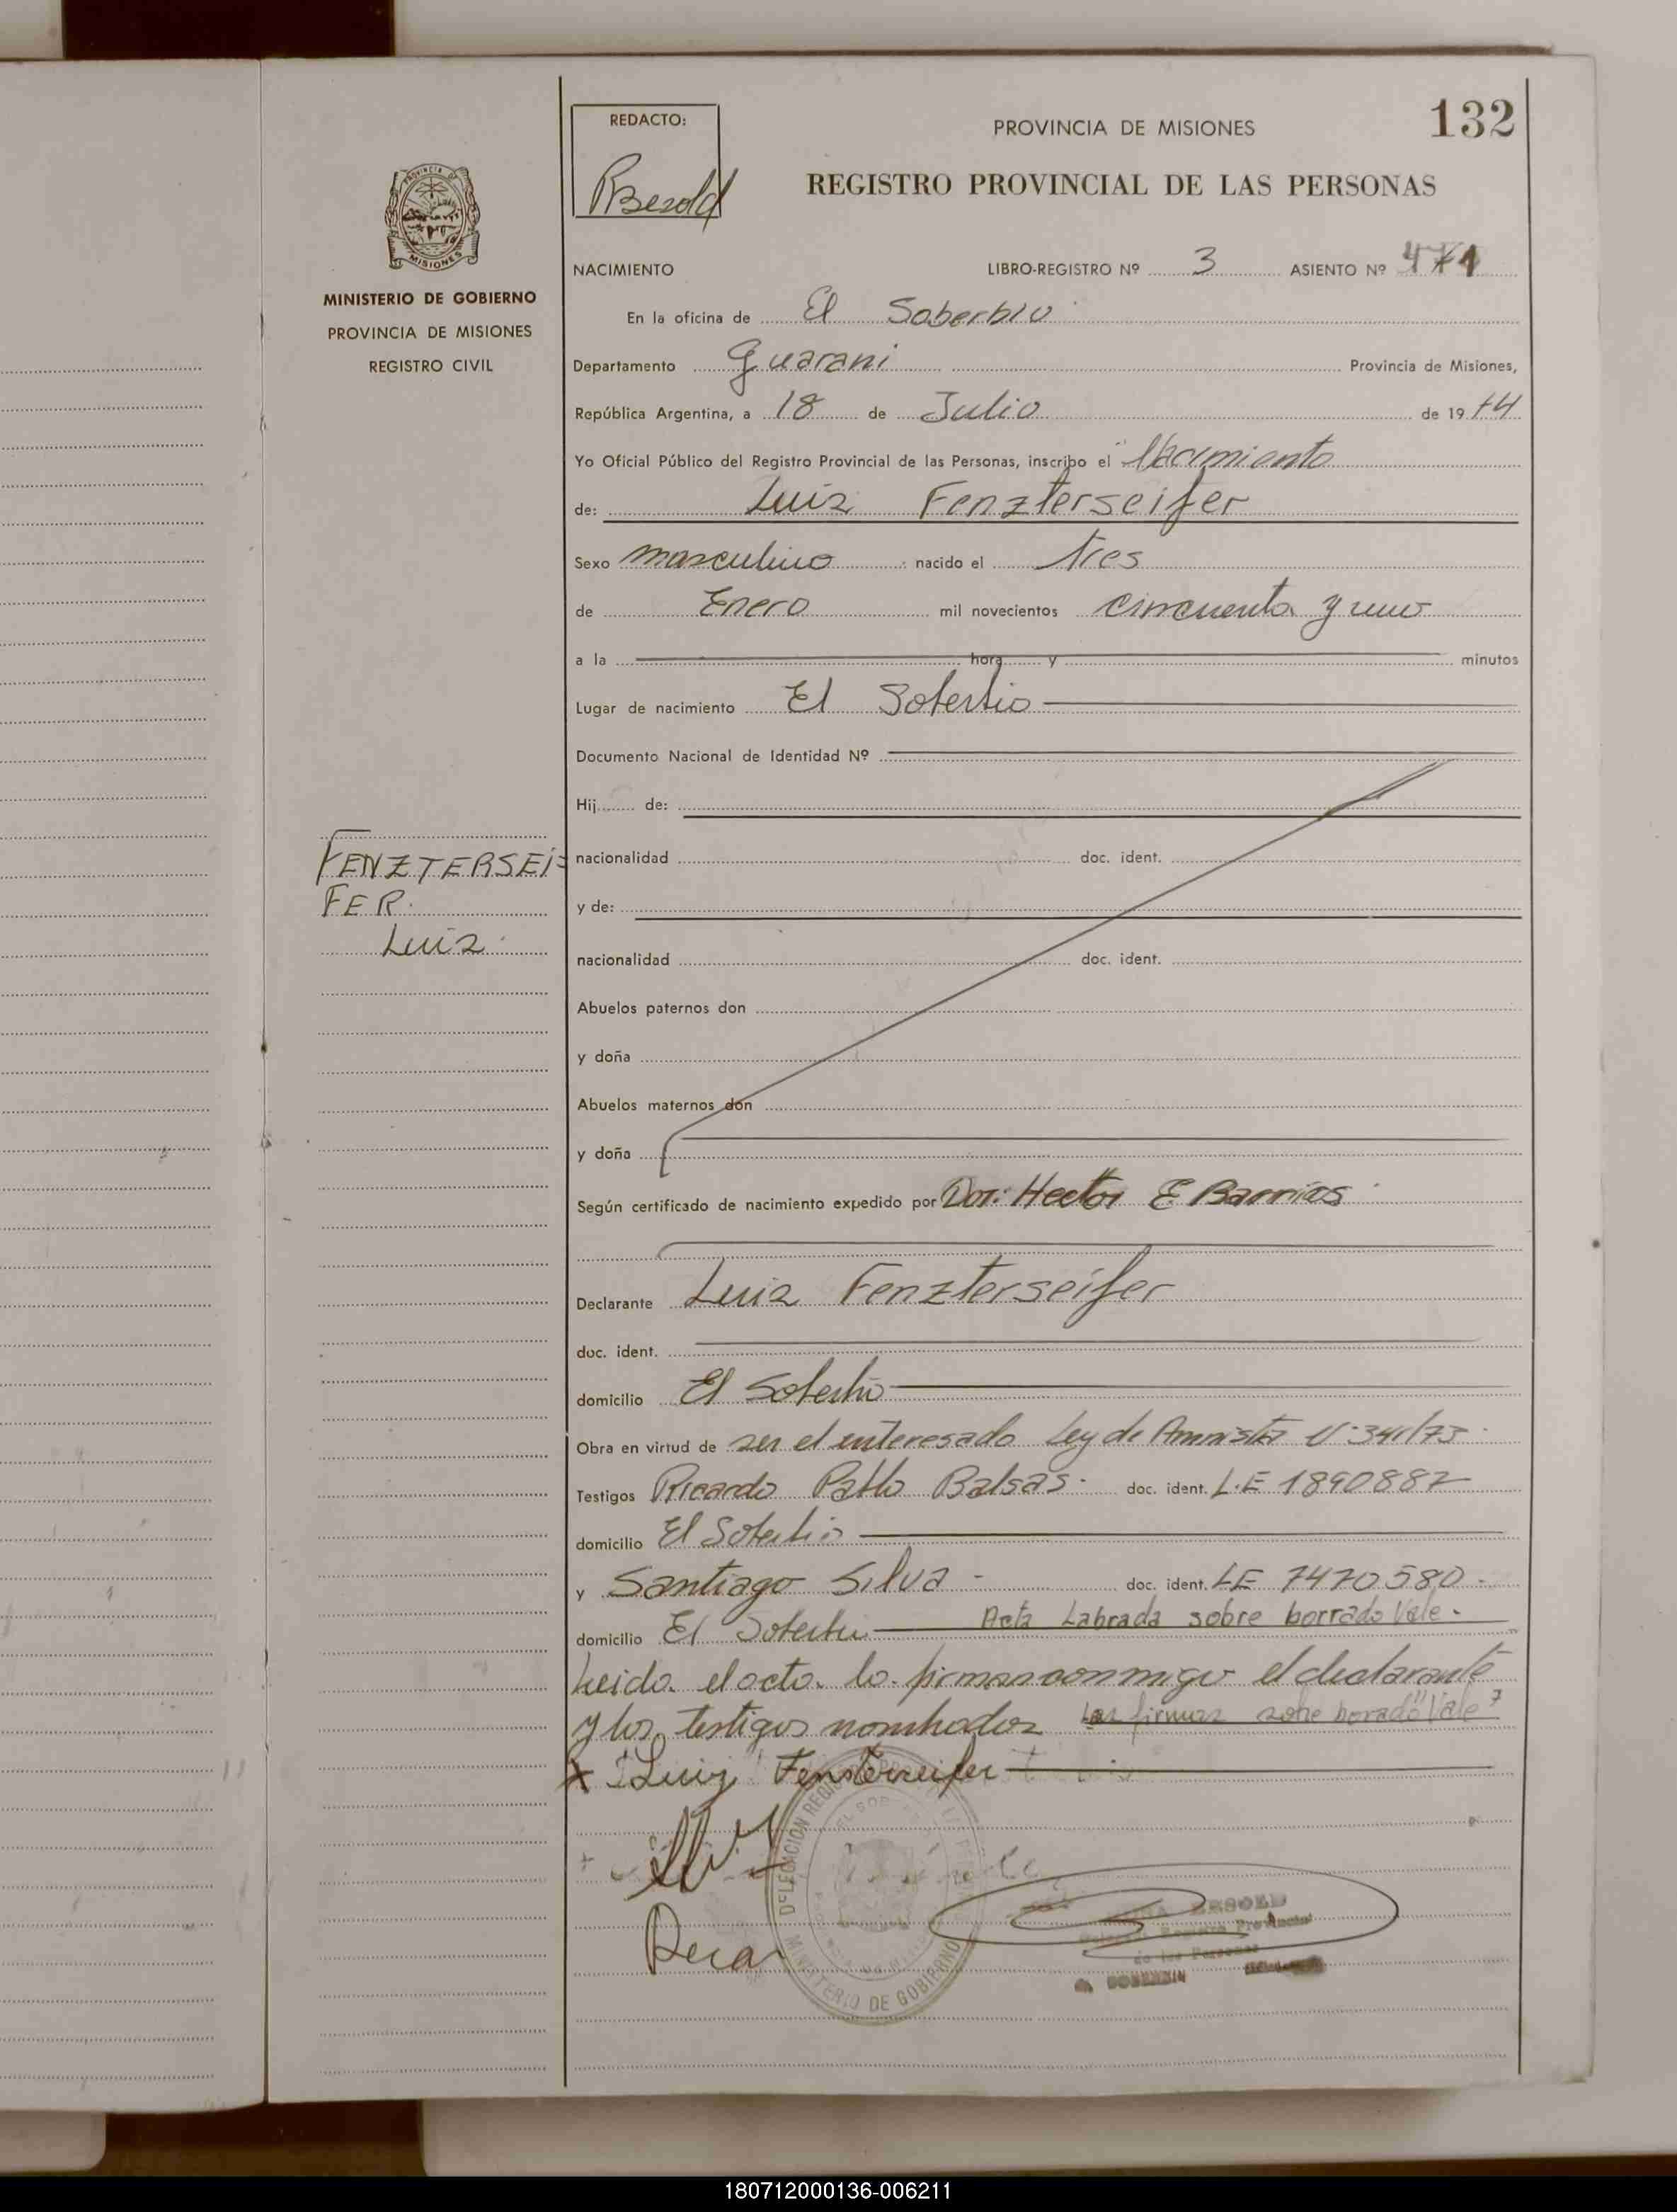 REDACTO:
PBezold
PROVINCIA DE MISIONES
132
REGISTRO PROVINCIAL DE LAS PERSONAS
PROVINCIA DE
MISIONES
MINISTERIO DE GOBIERNO
PROVINCIA DE MISIONES
REGISTRO CIVIL
NACIMIENTO LIBRO-REGISTRO Nº 3 ASIENTO Nº 471
En la oficina de El Soberbio
Departamento Guarani Provincia de Misiones,
República Argentina, a 18 de Julio de 1974
Yo Oficial Público del Registro Provincial de las Personas, inscribo el Nacimiento
de: Luiz Fenzterseifer
Sexo masculino nacido el tres
de Enero mil novecientos cincuenta y uno
a la hora y minutos
Lugar de nacimiento El Soberbio
Documento Nacional de Identidad Nº
Hij de:
FENZTERSEI=
FER.
Luiz.
nacionalidad doc. ident.
y de:
nacionalidad doc. ident.
Abuelos paternos don
y doña
Abuelos maternos don
y doña
Según certificado de nacimiento expedido por Dor: Hector E Barrios
Declarante Luiz Fenzterseifer
doc. ident.
domicilio El Soberbio
Obra en virtud de ser el interesado Ley de Amnistia Nº 341/73
Testigos Ricardo Pablo Balsas. doc. ident. L.E 1890887
domicilio El Soberbio
y Santiago Silva - doc. ident. LE 7470580.-
domicilio El Soberbio Acta Labrada sobre borrado Vale.
Leida el acta lo firman conmigo el declarante
y los testigos nombrados Las firmas sobre borrado "Vale"
x Luiz Fensterseifer
DELEGACION
MINISTERIO DE GOBIERNO
Registro Provincial
de las Personas
180712000136-006211